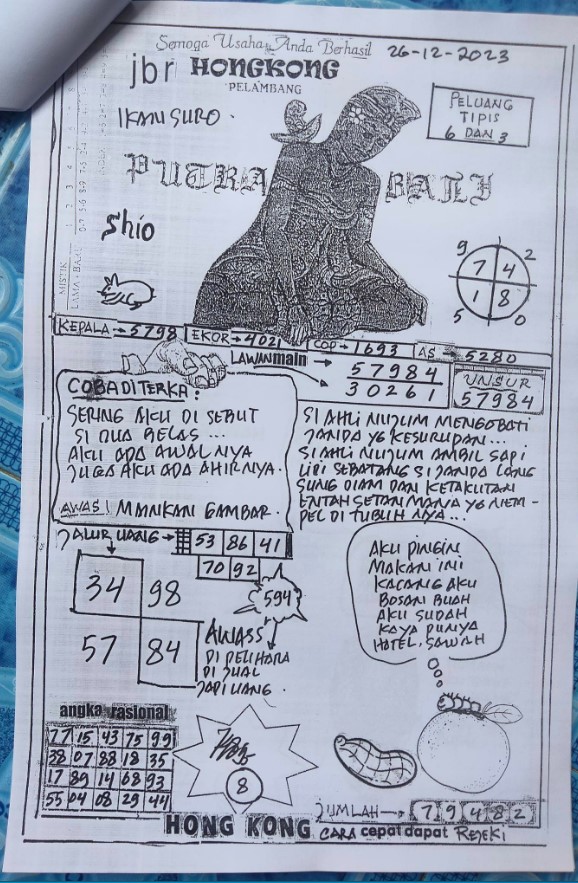 Semoga Usaha Anda Berhasil
26-12-2023
jbr HONGKONG
PELAMBANG
PELUANG
TIPIS
6 DAN 3
IKAN SURO.
PUTRA BALI
Shio
MISTIK
LAMA - BARU
INDEX
9 2
7 4
1 8
5 0
KEPALA → 5798
EKOR → 4021
COP → 1693
AS → 5280
LAWAN main →
57984
30261
UNSUR
57984
COBA DITERKA:
SERING AKU DI SEBUT
SI DUA BELAS ...
AKU ADA AWALNYA
JUGA AKU ADA AHIRNYA.
AWAS! MAINKAN GAMBAR.
SI AHLI NUJUM MENGOBATI
JANDA YG KESURUPAN...
SI AHLI NUJUM AMBIL SAPI
LIDI SEBATANG SI JANDA LANG
SUNG DIAM DAN KETAKUTAN
ENTAH SETAN MANA YG NEM-
PEL DI TUBUH NYA...
JALUR UANG → 53 86 41
70 92
34 98
57 84
594
AWASS
DI PELIHARA
DI JUAL
JADI UANG.
AKU PINGIN
MAKAN INI
KACANG AKU
BOSAN BUAH
AKU SUDAH
KAYA PUNYA
HOTEL. SAWAH
angka rasional
77 15 43 75 99
38 07 88 18 35
17 89 14 68 93
55 04 08 29 44
8
JUMLAH → 7 9 4 8 2
HONG KONG CARA cepat dapat REJEKI